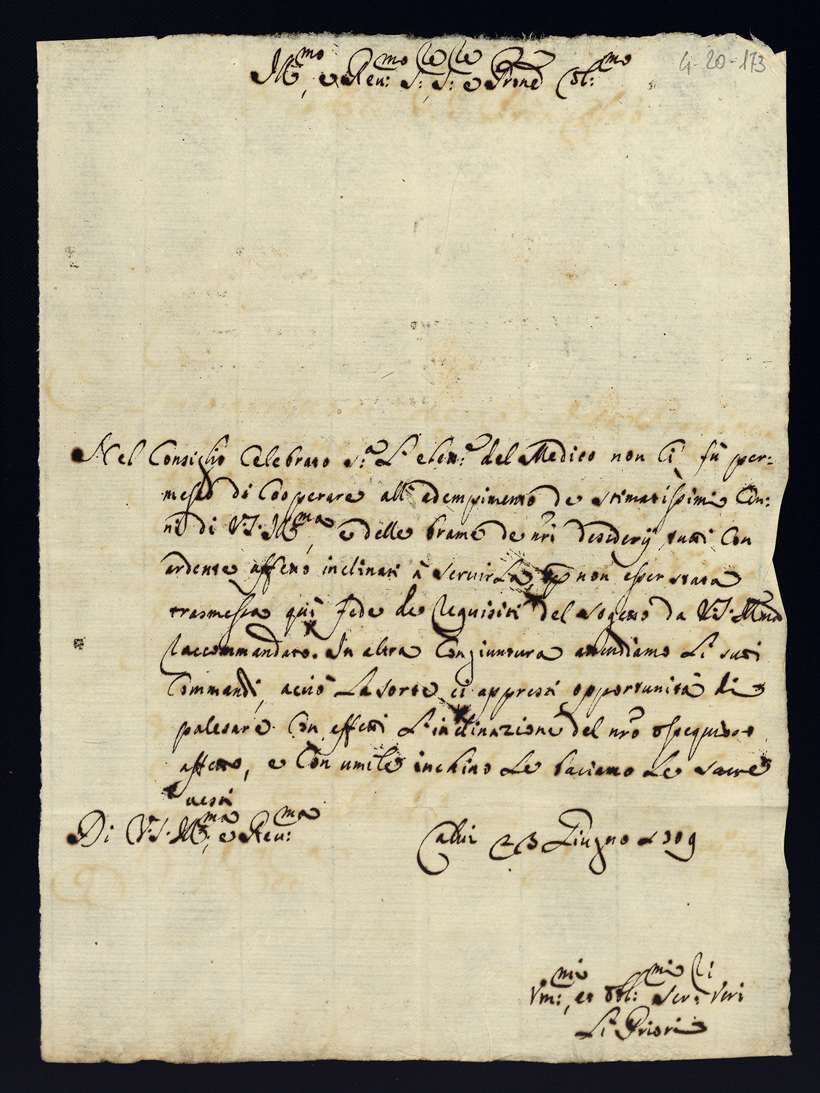 4-20-173
Ill:mo, e Reu:mo S:re, S:re e Prone Col:mo
Nel Consiglio Celebrato s:a L'elen:e del Medico non Ci fù per=
messo di Cooperare all'adempimento de stimatissimi Cen=
ni di V.S. Ill:ma e delle brame de nri desiderij tutti Con
ardente affetto inclinati à seruirLa, non esser stata
trasmessa quì fede de Requisiti del sogetto da V.S. Ill:ma
Raccommandato. In altra Congiuntura attendiamo Li suoi
Commandi, acciò La sorte ci appresti opportunità di
palesare Con effetti L'inclinazione del nro ossequioso
affetto, e Con umile inchino Le baciamo Le sacre
uesti
Di V.S. Ill:ma, e Reu:ma
Calui 23 Giugno 1709
Vm:mi, et obl:mi Ser:ri Veri
Li Priori